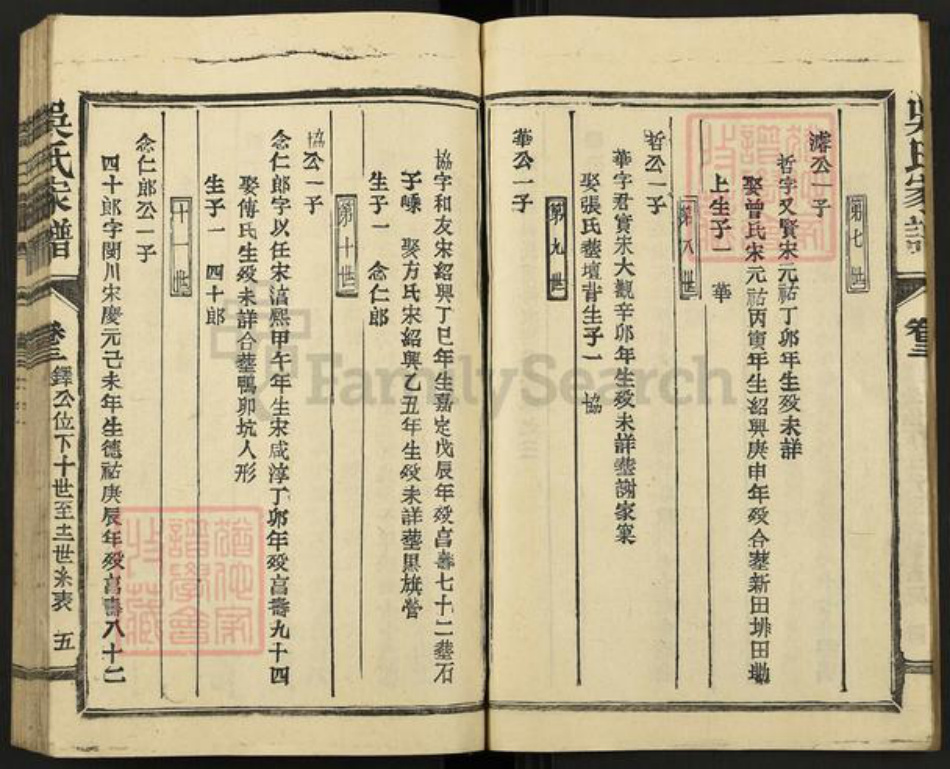 第七世
濬公一子
哲字又賢宋元祐丁卯年生歿未詳
娶曾氏宋元祐丙寅年生紹興庚申年歿合塟新田排田墈
上生子一 華
第八世
哲公一子
華字君實宋大觀辛卯年生歿未詳塟謝家窠
娶張氏塟壇背生子一 協
第九世
華公一子
協字和友宋紹興丁巳年生嘉定戊辰年歿亯壽七十二塟石
子㟍 娶方氏宋紹興乙丑年生歿未詳塟黑旗營
生子一 念仁郎
第十世
協公一子
念仁郎字以任宋淳熙甲午年生宋咸淳丁卯年歿亯壽九十四
娶傅氏生歿未詳合塟鴨卵坑人形
生子一 四十郎
十一世
念仁郎公一子
四十郎字閩川宋慶元己未年生德祐庚辰年歿亯壽八十二
吳氏家譜 卷三 鐸公位下十世至十二世糸表 五
吳氏家譜 卷三
FamilySearch
譜學會
收藏